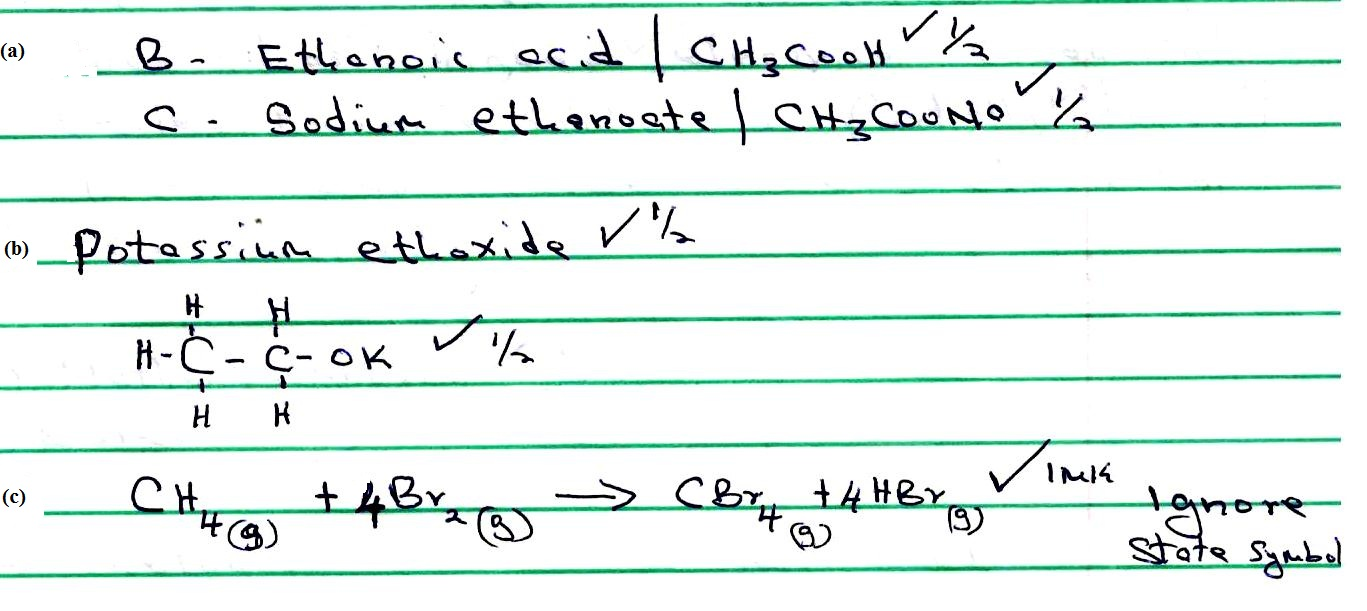 (a) B - Ethanoic acid | CH₃COOH ✓ ½
C - Sodium ethanoate | CH₃COONa ✓ ½
(b) Potassium ethoxide ✓ ½
H H
H-C-C-OK ✓ ½
H H
(c) CH₄(g) + 4Br₂(g) → CBr₄(g) + 4HBr(g) ✓ 1mk Ignore
State Symbol